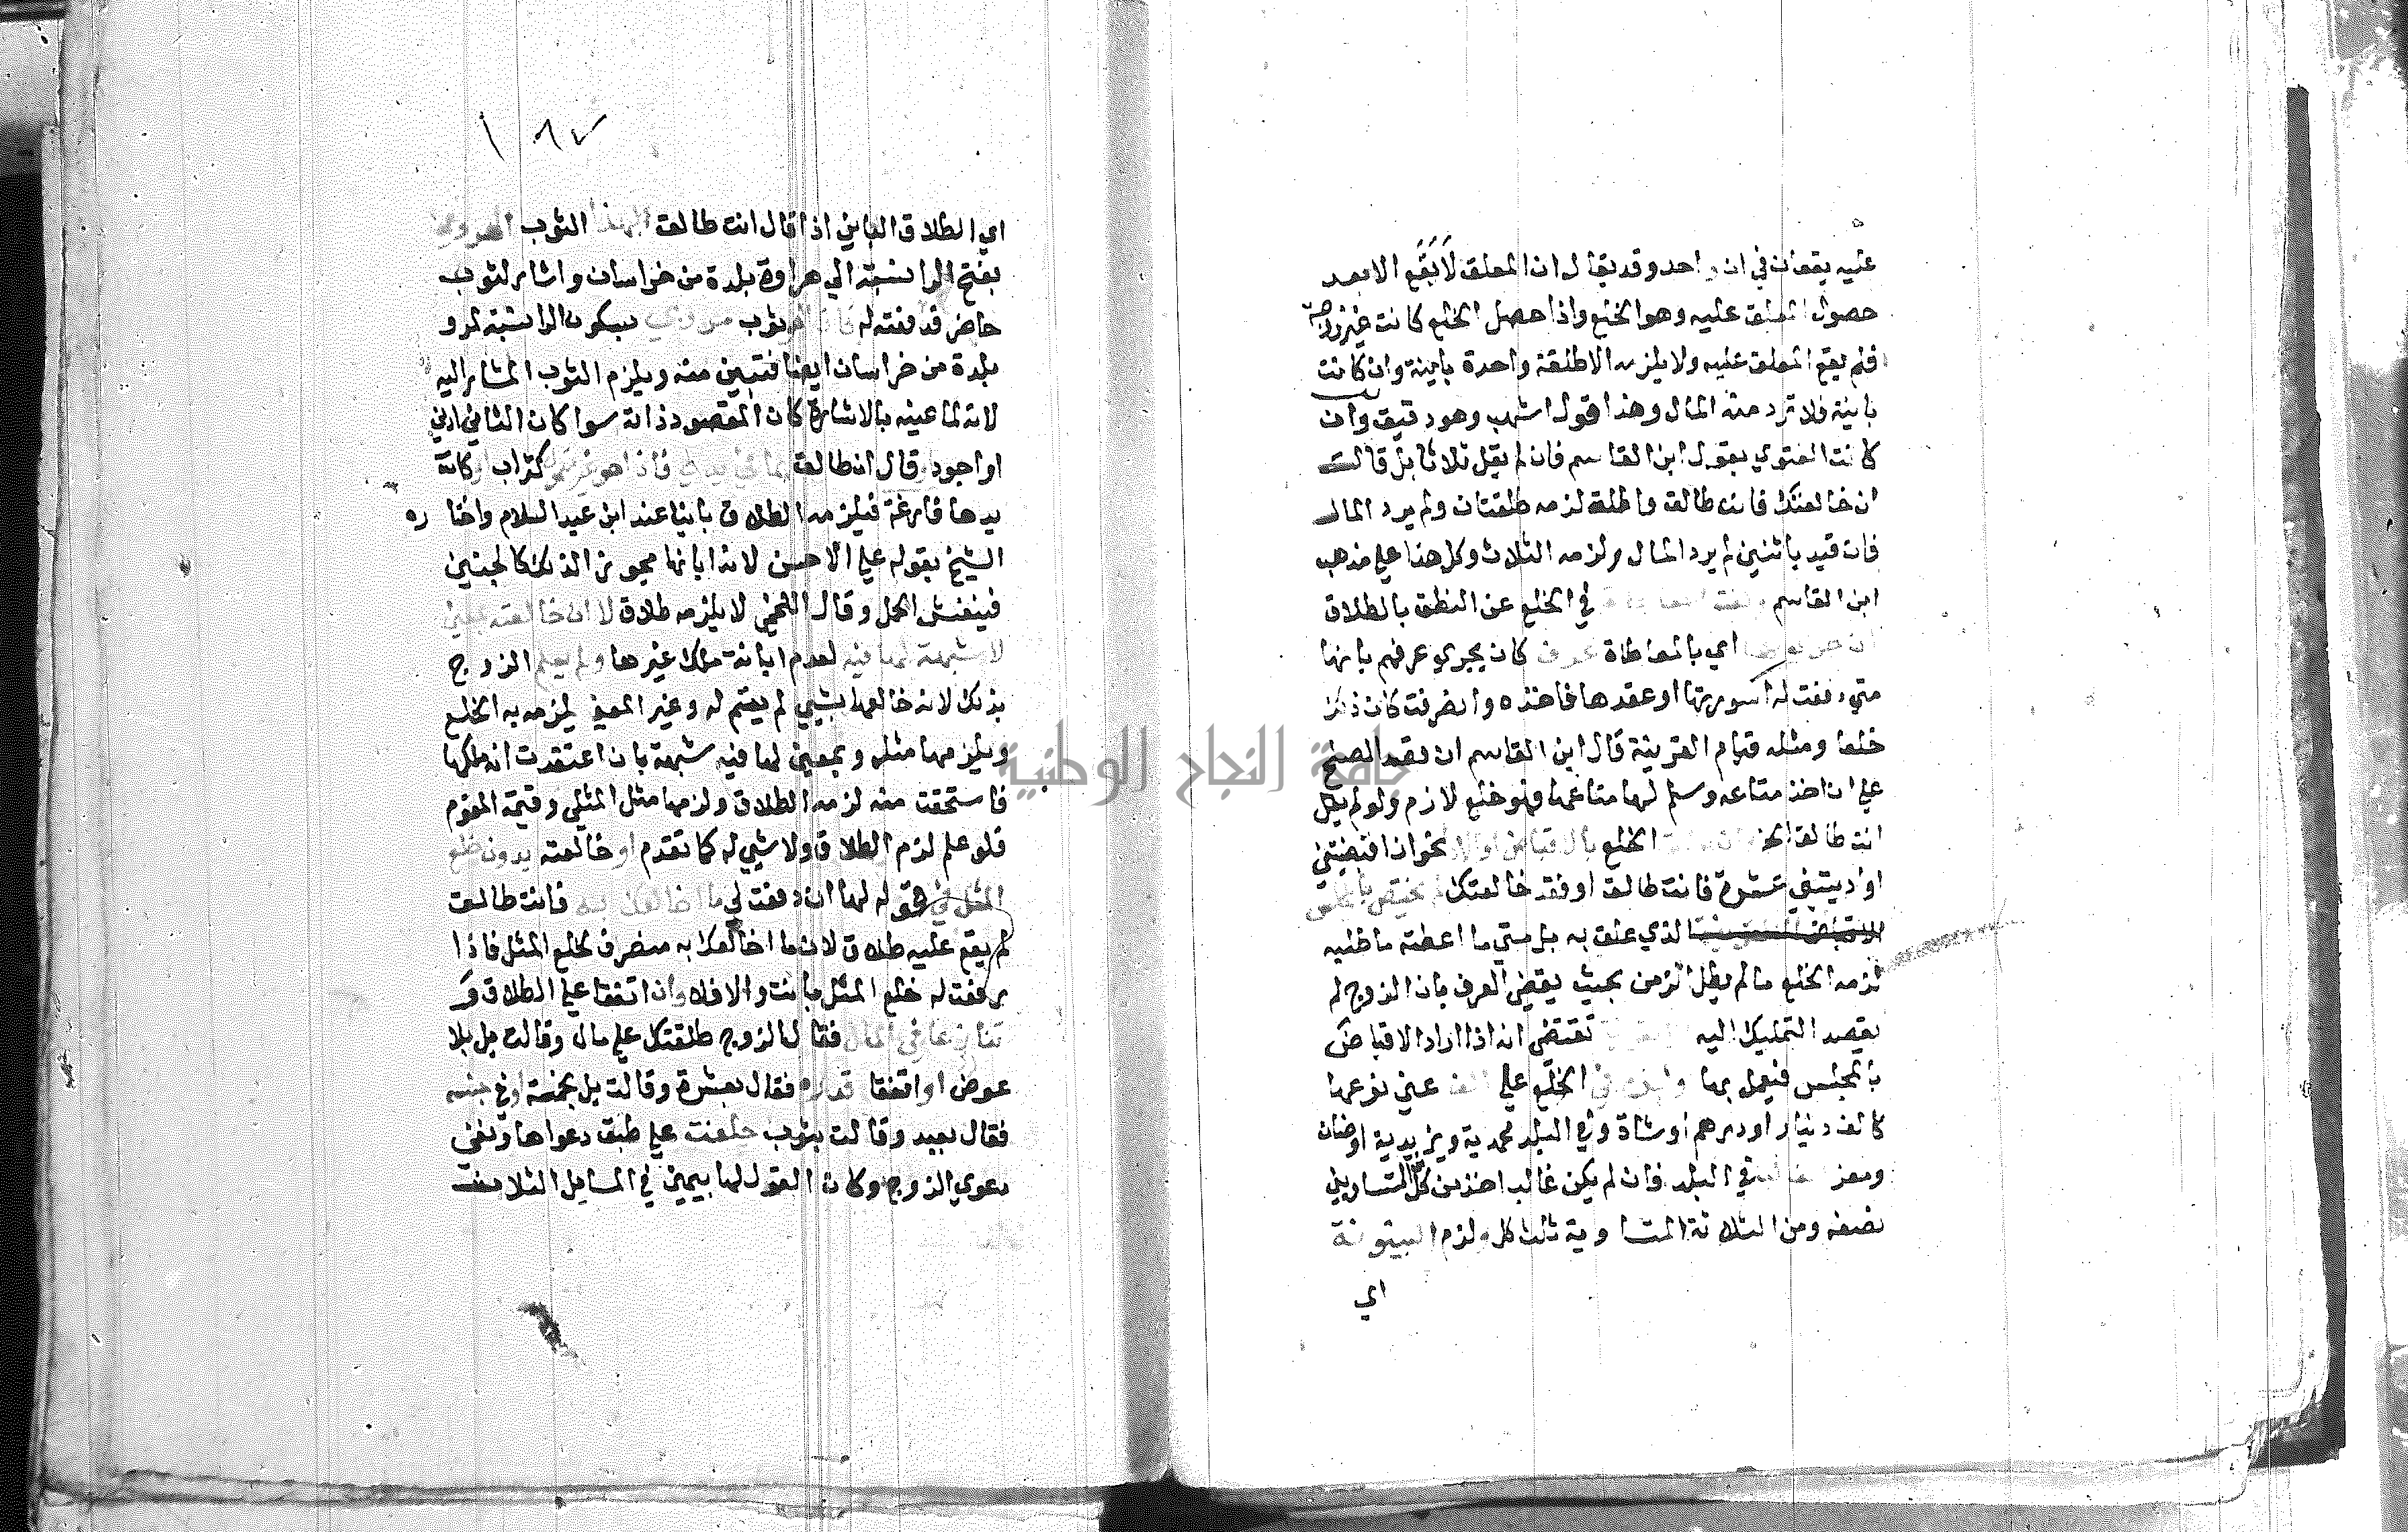 عليه يقعان في ان واحد وقد يقال ان المعلق لا يقع الا بعد
حصول المعلق عليه وهو الخلع واذا حصل الخلع كانت غير زوجة
فلم يقع المعلق عليه ولا يلزمه الا طلقة واحدة باينة وان كانت
باينة فلا ترد منه المال وهذا قول اشهب وهو دقيق وان
كانت الفتوي بقول ابن القاسم فان لم يقل ثلاثا بل قالت
ان خالعتك فانت طالق واطلق لزمه طلقتان ولم يرد المال
فان قيد باثنين لم يرد المال ولزمه الثلاث وكل هذا علي مذهب
ابن القاسم في الخلع عن النطق بالطلاق
اي بالمعاطاة كان يجري عرفهم بانها
متي دفعت له اسورتها او عقدها فاخذه وانصرفت كان ذلك
خلعا ومثله قيام القرينة قال ابن القاسم ان قصد الصلح
علي ان اخذ متاعه وسلم لها متاعها فهو خلع لازم ولو لم يقل
انت طالق الخلع بالاقباض نحو ان اقبضتني
او اديتني عشرة فانت طالق او فقد خالعتك لم يختص بالمجلس
الذي علق به بل متي ما اعطته ما طلبه
لزمه الخلع ما لم يطل الزمن بحيث يقضي العرف بان الزوج لم
يقصد التمليك اليه تقتضي انه اذا اراد الاقباض
بالمجلس فيعمل بها في الخلع علي عين نوعها
كالف دينار او درهم او شاة وفي البلد محمدية ويزيدية او ضان
ومعز في البلد فان لم يكن غالب اخذ من كل المتساويين
نصفه ومن الثلاثة المتساوية ثلث كل ولزم البينونة
اي
١٨٧
اي الطلاق الباين اذا قال انت طالق بهذا الثوب الهروي
بفتح الرا نسبة الي هراوة بلدة من خراسان واشار لثوب
حاضر قد دفعته له ثوب مروي بسكون الرا نسبة لمرو
بلدة من خراسان ايضا فتبين منه ويلزم الثوب المشار اليه
لانه لما عينه بالاشارة كان المقصود ذاته سوا كان الثاني ادني
او اجود قال انت طالق بما في يدك فاذا هو غير متمول كتراب او كانت
يدها فارغة فيلزمه الطلاق باينا عند ابن عبد السلام واختاره
الشيخ بقوله علي الاحسن لانه ابانها مجوز الذلك كالجنين
فينفش الحمل وقال اللخمي لا يلزمه طلاق لا ان خالعته بمعين
لا شبهة لها فيه لعدم ابانة ملك غيرها ولم يعلم الزوج
بذلك لانه خالعها بشيي لم يتم له وغير المعين يلزمه به الخلع
ويلزمها مثله وبمعين لها فيه شبهة بان اعتقدت انه ملكها
فاستحقت منه لزمه الطلاق ولزمها مثل المثلي وقيمة المقوم
فلو علم لزم الطلاق ولا شيي له كما تقدم او خالعته بدون خلع
المثل في قوله لها ان دفعت لي ما اخالعك به فانت طالق
لم يقع عليه طلاق لان ما اخالعك به منصرف لخلع المثل فاذا
دفعت له خلع المثل بانت والا فلا وان اتفقا علي الطلاق و
تنازعا في المال فقال الزوج طلقتك علي مال وقالت بل بلا
عوض او اتفقا قدره فقال بعشرة وقالت بل بخمسة او في جنسه
فقال بعبد وقالت بثوب حلفت علي طبق دعواها ونفي
دعوي الزوج وكان القول لها بيمين في المسايل الثلاث